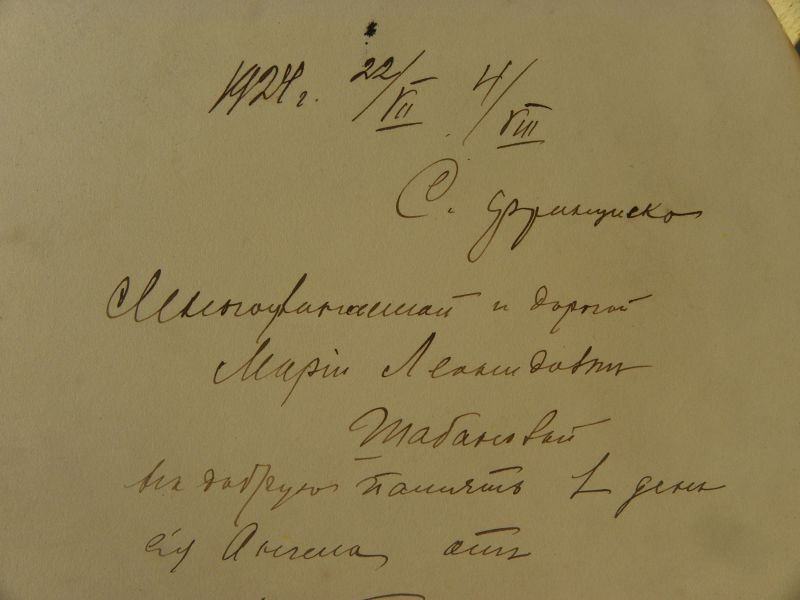 1924 г. 22/VII 4/VIII
С. Франциско
Многоуважаемой и дорогой
Маріи Леонидовнѣ
Шабановой
на добрую память в день
ея Ангела отъ